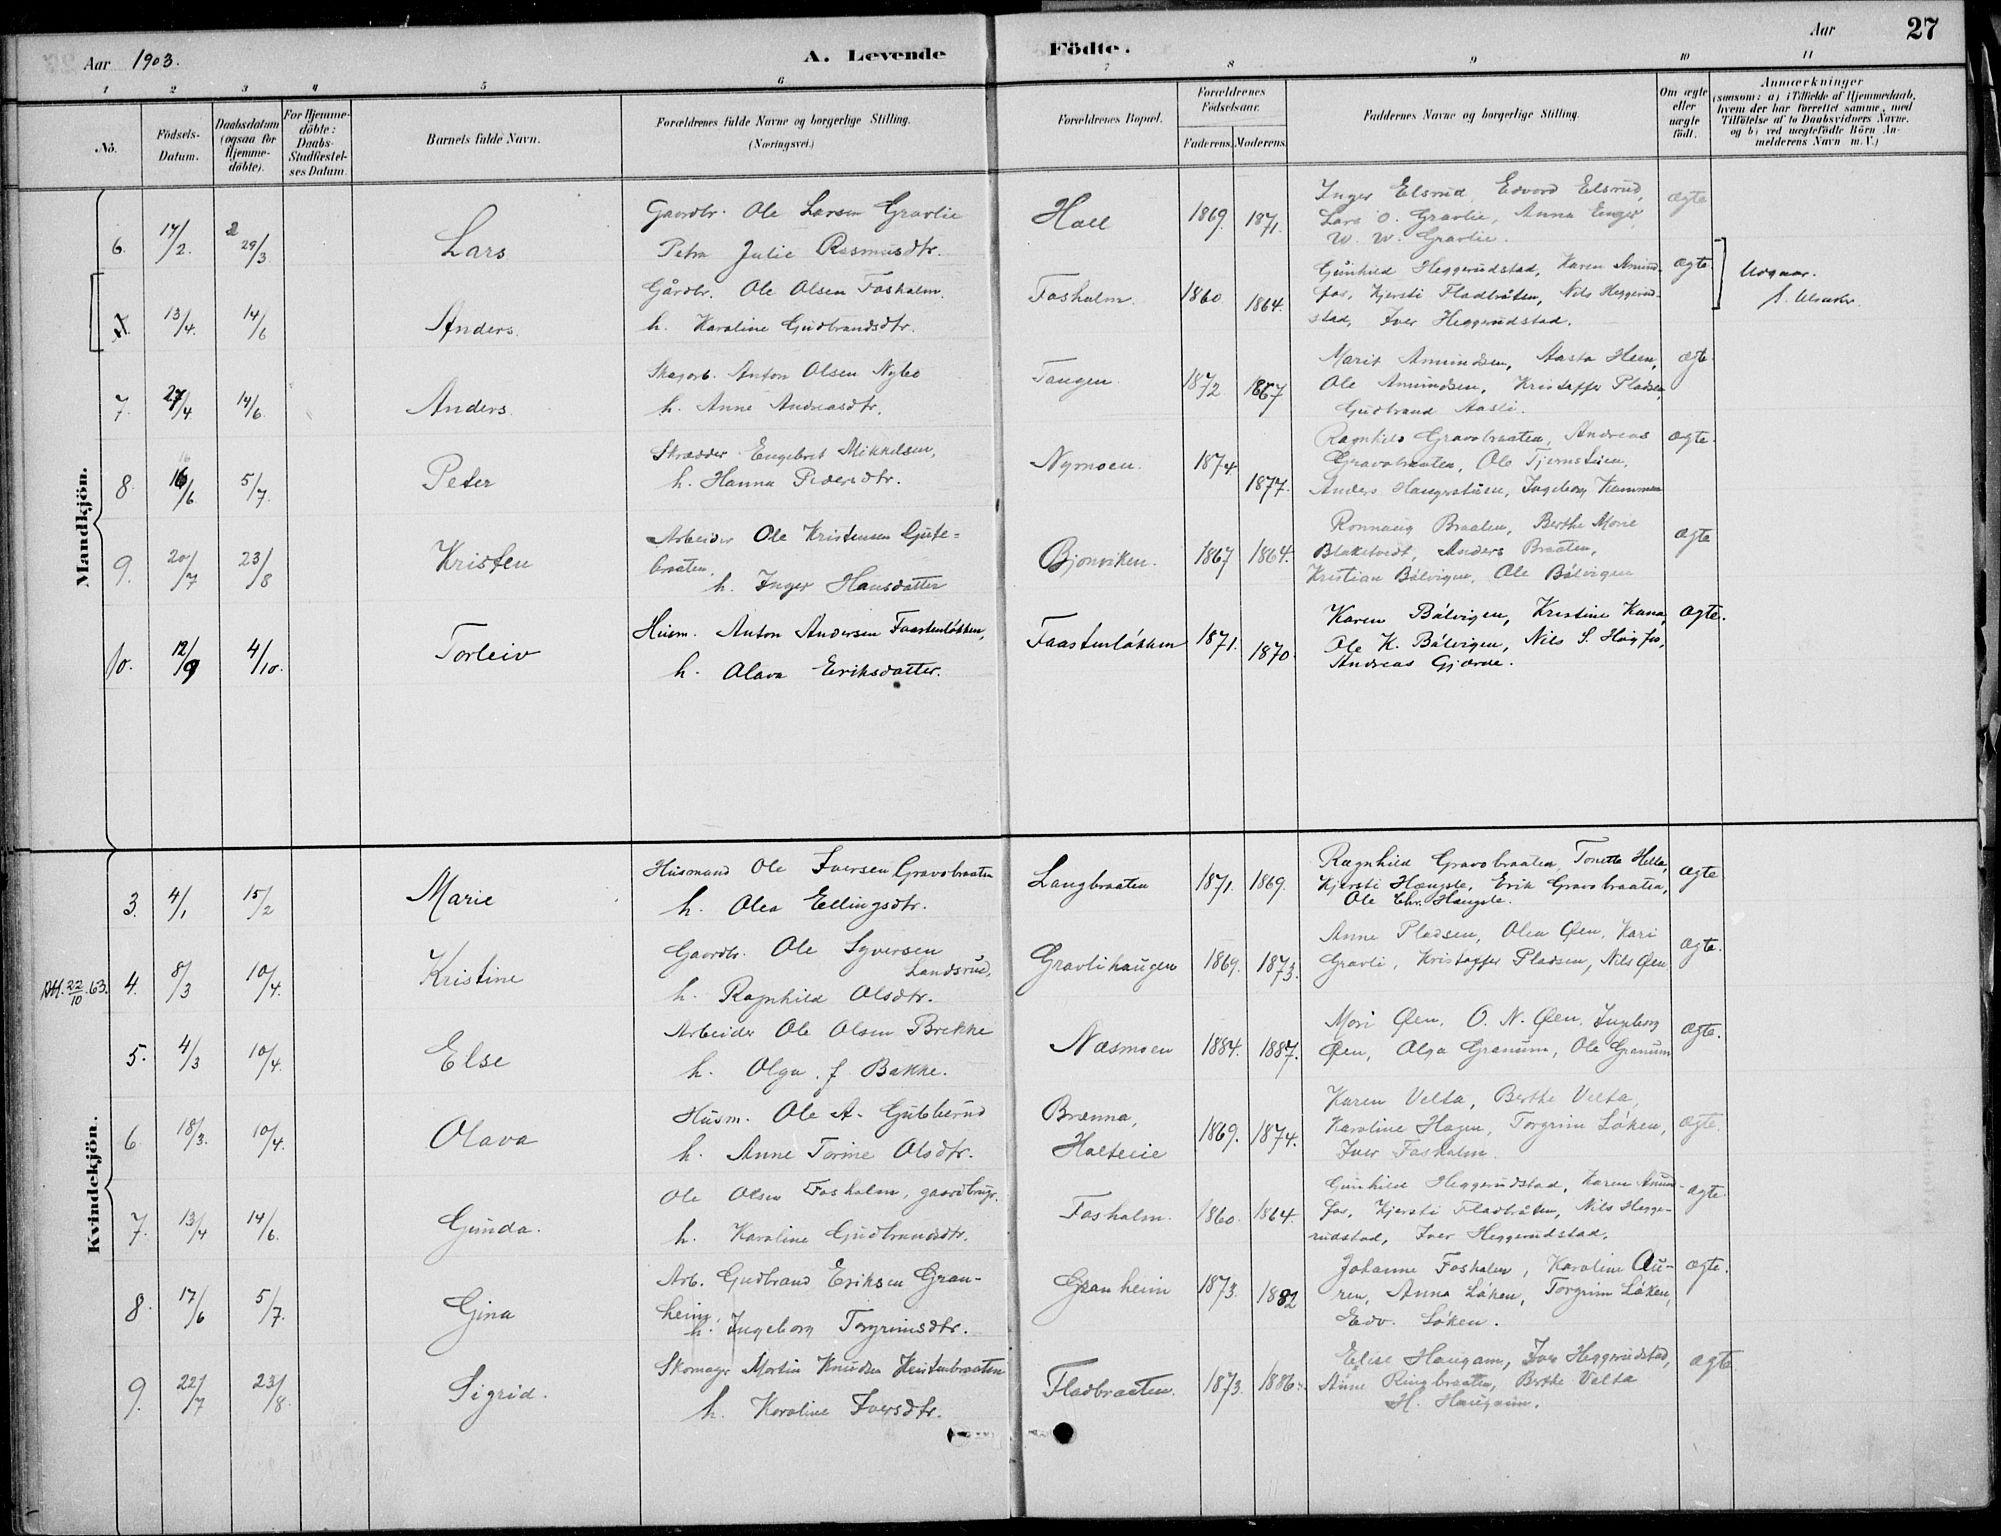 Aar 1903. A. Levende Födte. Aar 27
1 2 3 4 5 6 7 8 9 10 11
No.
Födsels-Datum.
Daabsdatum (ogsaa for Hjemme-döbte).
For Hjemme-döbte: Daabs-Stadfæstel-ses Datum.
Barnets fulde Navn.
Forældrenes fulde Navne og borgerlige Stilling. (Næringsvei.)
Forældrenes Bopæl.
Forældrenes Födselsaar.
Faderens. Moderens.
Faddernes Navne og borgerlige Stilling.
Om ægte eller uægte födt.
Anmærkninger
(saasom: a) i Tilfælde af Hjemmedaab, hvem der har forrettet samme, med Tilföielse af to Daabsvidners Navne. og b) ved uægtefödte Börn An-melderens Navn m. V.)
Mandkjön.
6. 17/2. 29/3 Lars
Gaardbr. Ole Larsen Gravlie
Petra Julie Rasmusdtr.
Hall 1869. 1871.
Inger Elsrud, Edvard Elsrud,
Lars O. Gravlie, Anna Enger,
W. W. Gravlie.
ægte
13/4. 14/6 Anders.
Gårdbr. Ole Olsen Fosholm.
h. Karoline Gudbrandsdtr.
Fosholm. 1860 1864.
Gunhild Heggerudstad, Karen Amund-
fos, Kjersti Fladbråten, Nils Heggerud-
stad, Iver Heggerudstad.
ægte.
Udgaar.
7. 27/4 14/6. Anders.
Skogarb. Anton Olsen Nybo
h. Anne Andreasdtr.
Tangen. 1872 1867
Marit Amundsen, Aasta Heen,
Ole Amundsen, Kristoffer Pladsen,
Gudbrand Aasli.
ægte
8. 16/6 5/7. Peter
Skrædder Engebret Mikkelsen,
h. Hanna Pedersdtr.
Nymoen. 1874 1877.
Ragnhild Gravobraaten, Andreas
Gravobraaten, Ole Tjernstuen,
Anders Haugerstuen, Ingeborg Kammen
ægte.
9. 20/7 23/8 Kristen
Arbeider Ole Kristensen Gjute-
braaten,
h. Inger Hansdatter
Bjonviken. 1867 1864.
Ronnaug Braaten, Berthe Marie
Blaketvedt, Anders Braaten,
Kristian Bålvigen, Ole Bålvigen
ægte
10. 12/9 4/10. Torleiv
Husm. Anton Andersen Faastenløkken,
h. Olava Eriksdatter.
Faastenløkken 1871. 1870.
Karen Bålvigen, Kristine Kana,
Ole K. Bålvigen, Nils S. Høgfos,
Andreas Gjærde.
ægte.
Kvindekjön.
3. 4/1 15/2 Marie
Husmand Ole Iversen Gravobraaten
h. Olea Ellingsdtr.
Langbraaten 1871. 1869.
Ragnhild Gravobraaten, Tonetta Hella,
Kjersti Haugsle, Erik Gravobraaten,
Ole Chr. Haugsle.
ægte
22/10.63. 4. 8/3 10/4. Kristine
Gaardbr. Ole Syversen
Landsrud,
h. Ragnhild Olsdtr.
Gravlihaugen 1869. 1873.
Anne Pladsen, Olea Øen, Kari
Gravli, Kristoffer Pladsen, Nils Øen.
ægte.
5. 4/3 10/4. Else
Arbeider Ole Olsen Brekke
h. Olga f. Bakke.
Næsmoen 1884. 1887.
Mari Øen, O. N. Øen, Ingeborg
Øen, Olga Granum, Ole Granum
ægte.
6. 18/3. 10/4. Olava
Husm. Ole A. Gubberud
h. Anne Torine Olsdtr.
Brænna,
Halteie 1869. 1874.
Karen Velta, Berthe Velta,
Karoline Hagen, Torgrim Løken,
Iver Fosholm.
ægte.
7. 13/4 14/6. Gunda.
Ole Olsen Fosholm, gaardbrugr.
h. Karoline Gudbrandsdtr.
Fosholm. 1860. 1864.
Gunhild Heggerudstad, Karen Amund-
fos, Kjersti Fladbråten, Nils Hegge-
rudstad, Iver Heggerudstad.
ægte
8. 17/6 5/7. Gina
Arb. Gudbrand Eriksen Gran-
heim,
h. Ingeborg Torgrimsdtr.
Granheim 1873. 1882
Johanne Fosholm, Karoline Au-
ren, Anna Løken, Torgrim Løken,
Edv. Løken.
ægte.
9. 22/7 23/8. Sigrid.
Skomager Martin Knudsen Keisenbraaten
h. Karoline Iversdtr.
Fladbraaten. 1873. 1886.
Elise Haugam, Iver Heggerudstad,
Anne Ringbraaten, Berthe Velta
H. Haugam.
ægte.